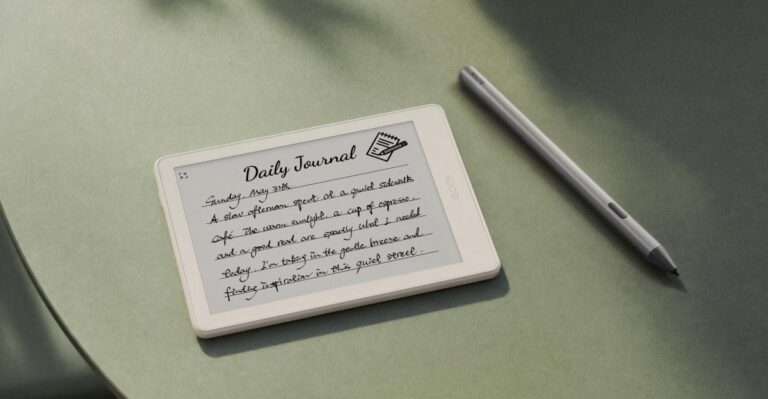 Daily Journal
Sunday, May
A slow afternoon spent at a quiet sidewalk
café. The warm sunlight, a cup of espresso,
and a good read are exactly what I need
today. I'm taking in the gentle breeze and
finding inspiration in this quiet street.
BOOX